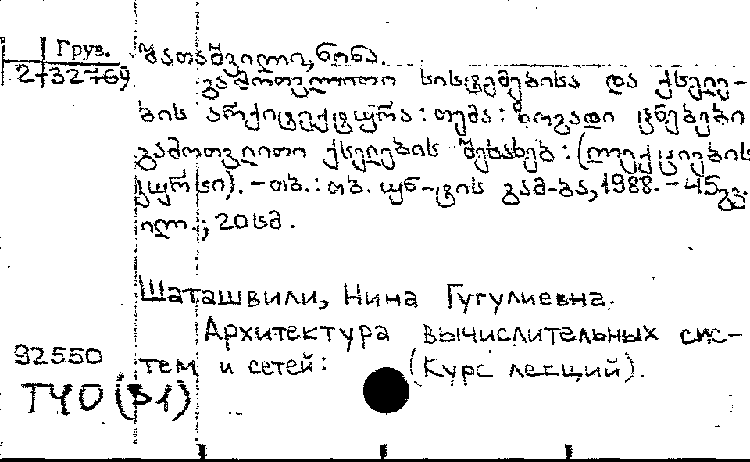 Груз.
2-32769
შათაშვილი, ნინა.
გამოთვლითი სისტემებისა და ქსელე-
ბის არქიტექტურა: თემა: ზოგადი ცნებები
გამოთვლითი ქსელების შესახებ: (ლექციების
კურსი). - თბ.: თბ. უნ-ტის გამ-ბა, 1988. - 45გვ.
ილ.; 20სმ.
Шаташвили, Нина Гугулиевна.
Архитектура вычислительных сис-
тем и сетей: (Курс лекций).
92550
ТЧО (31)